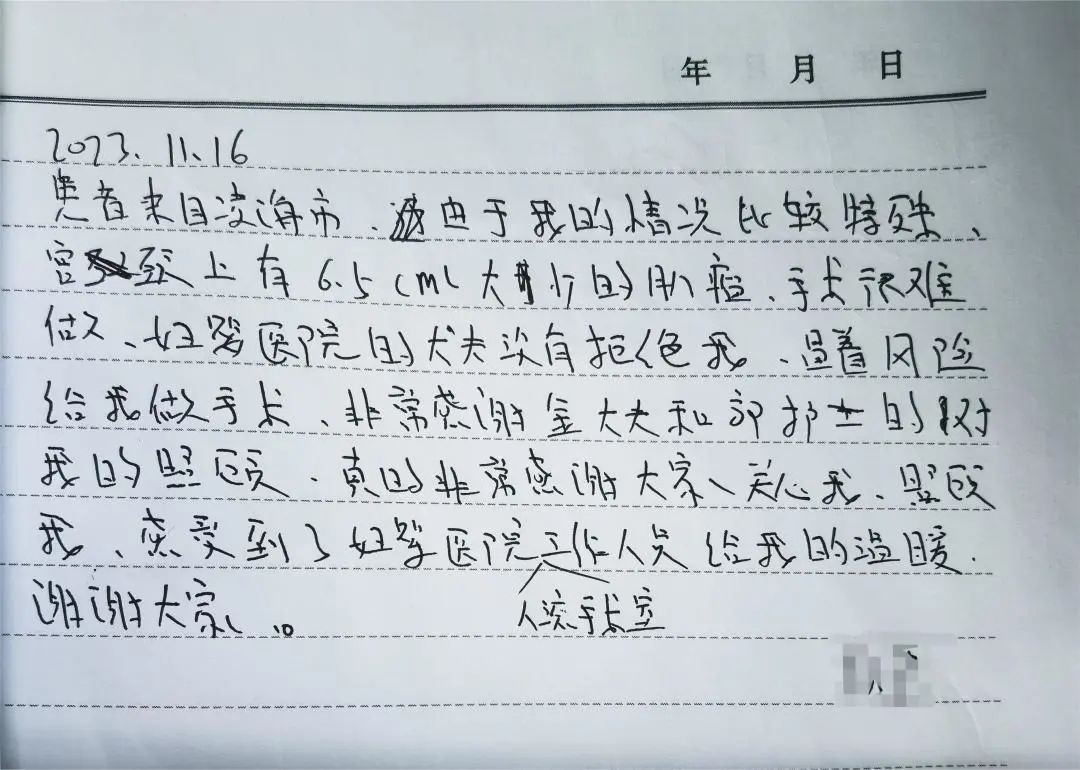 年 月 日
2023.11.16
患者来自凌海市、由于我的情况比较特殊、
宫颈上有6.5cm大的肌瘤、手术很难
做、妇婴医院的大夫没有拒绝我、冒着风险
给我做手术、非常感谢金大夫和郭护士的对
我的照顾、真的非常感谢大家、关心我、照顾
我、感受到了妇婴医院工作人员给我的温暖.
谢谢大家、。
人流手术室